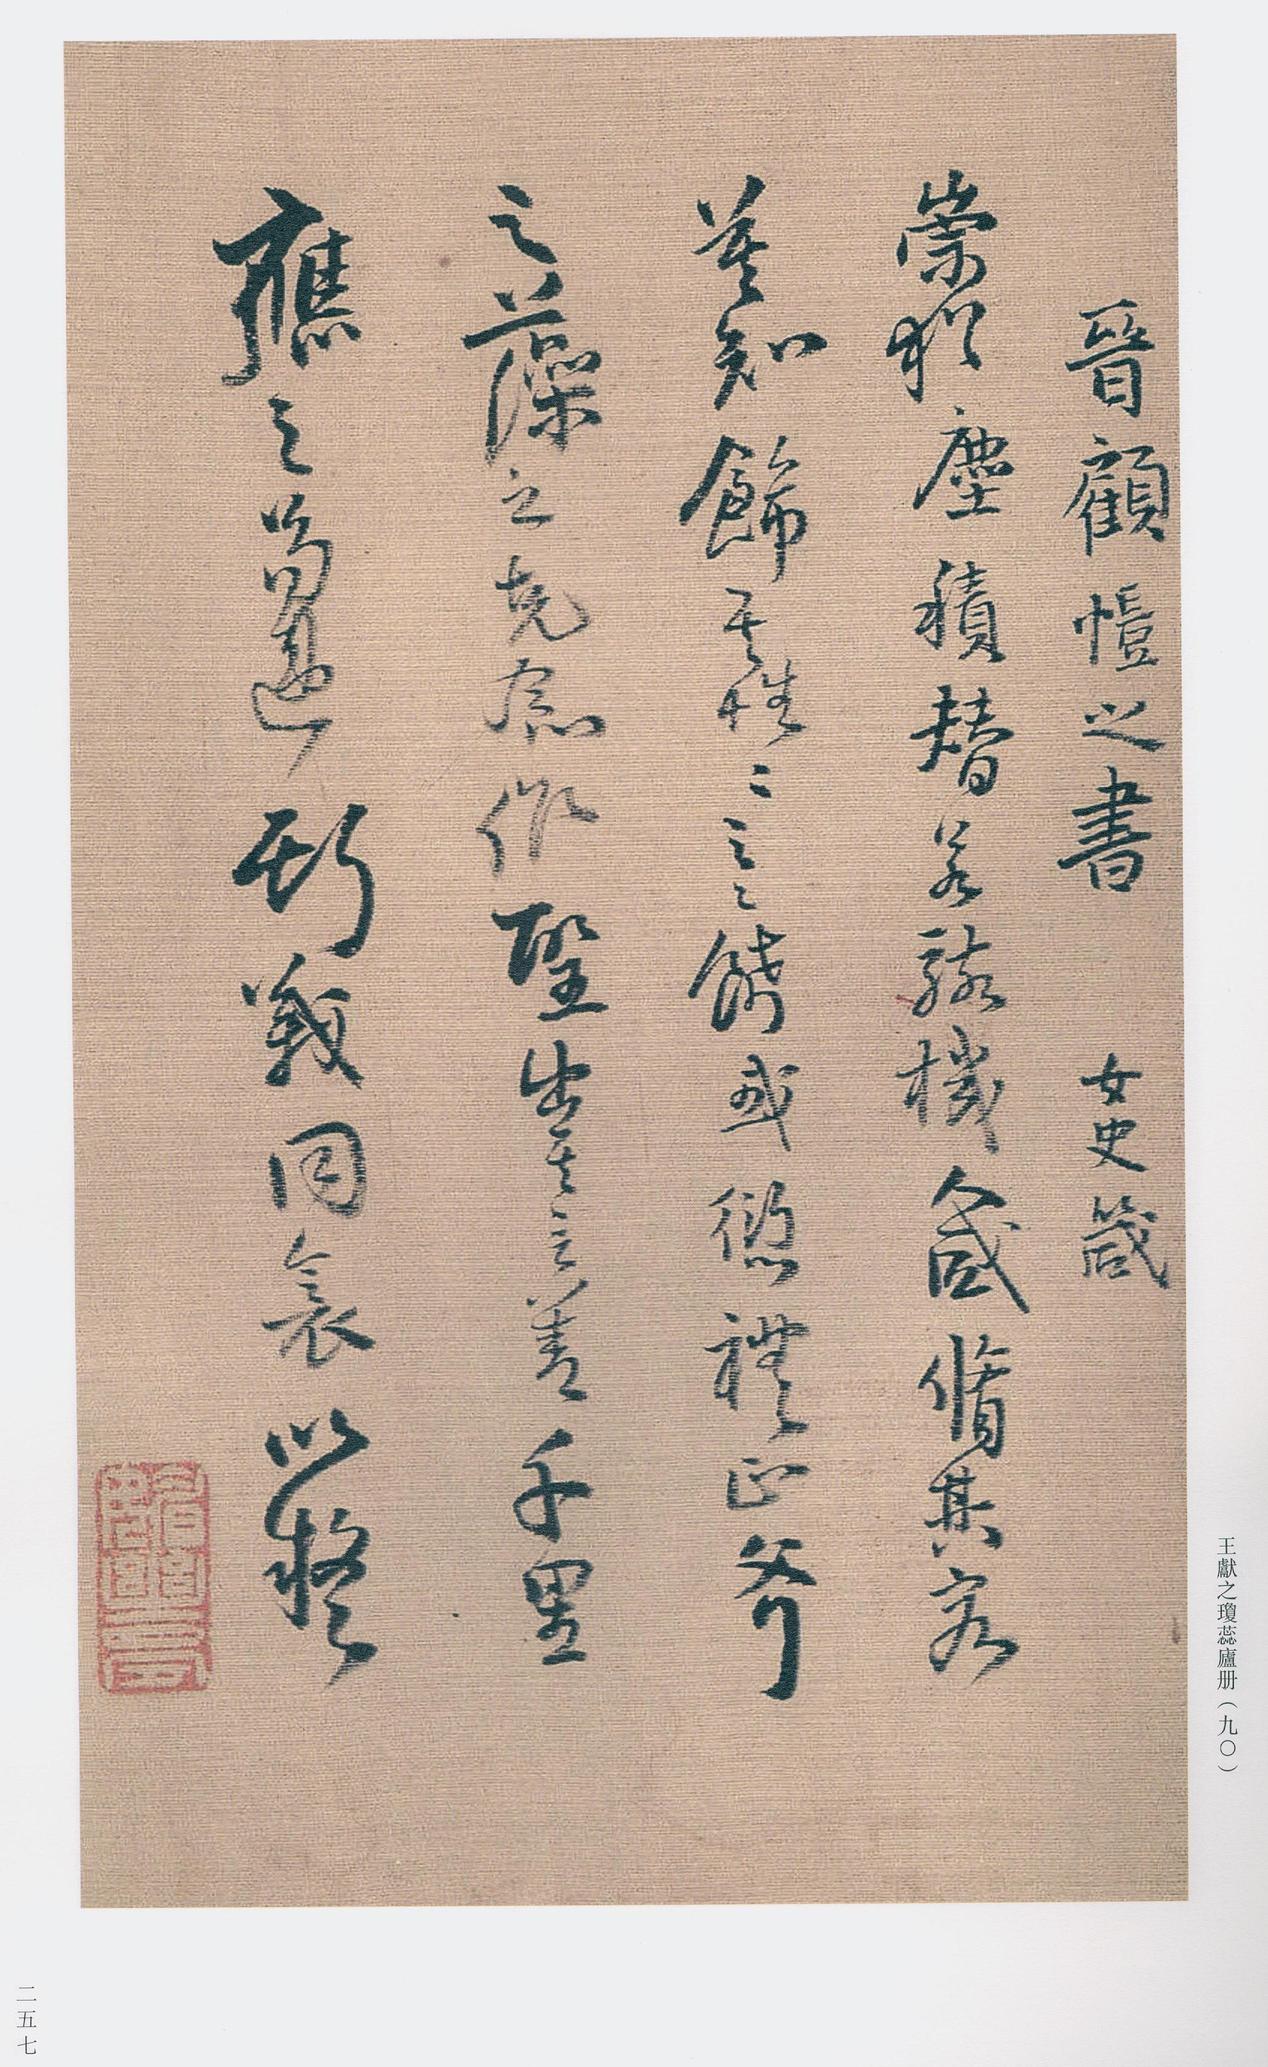 晉顧愷之書 女史箴
崇猶塵積替若駭機人咸脩其容
莫知飾其性〻之不飾或愆禮正斧
之藻之克念作聖出其言善千里
應之苟違斯義同衾以疑
王獻之瓊蕊廬册（九〇）
二五七